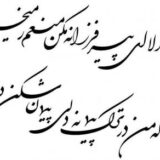 الا ای پیر فرزانه مکن منعم ز میخ
که من در ترک پیمانه دلی پیمان شکن د